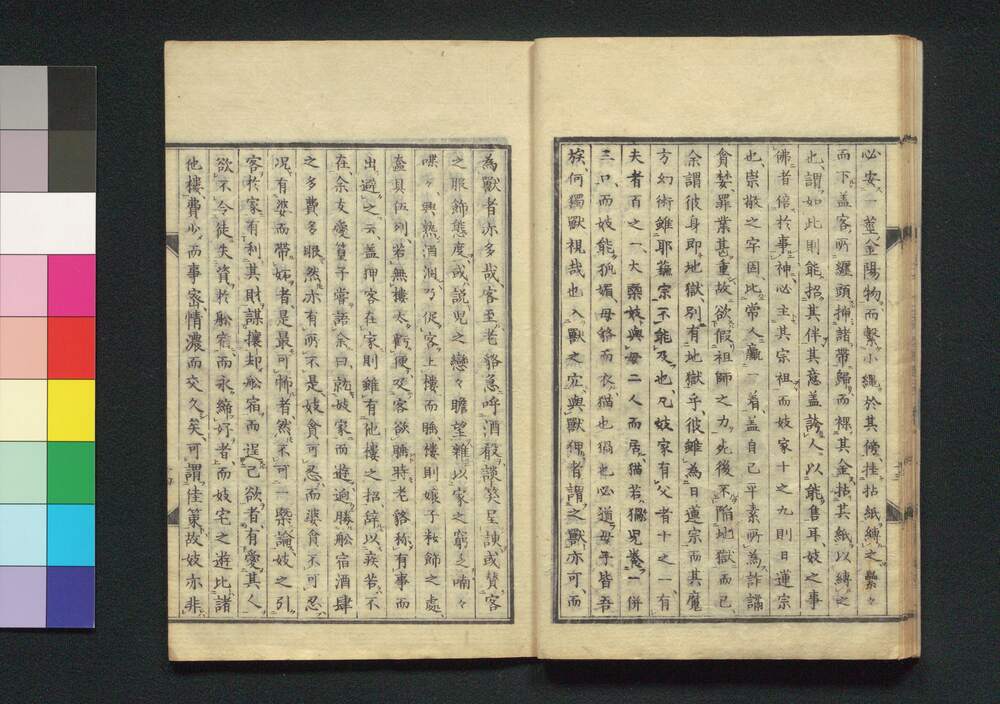 必安一莖金陽物而繫小繩於其傍挂拈紙縛之纍々
而下蓋客所纏頭挿諸帶歸而裸其金拈其紙以縛之
也謂如此則能招其伴其意蓋誇人以能售耳妓之事
佛者倍於事神必主其宗祖而妓家十之九則日蓮宗
也崇敬之字因比常人贏一着蓋自己平素所為詐譎
貪婪罪業甚重故欲假祖師之力死後不陷地獄而已
余謂彼身即地獄別有地獄乎彼雖為日蓮宗而其魔
方幻術雖耶蘇宗不能及也凡妓家有父者十之一有
夫者百之一大槩妓與母二人而居猫若猧兒養一併
三口而妓能狐媚母貉而衣猫也猧也必道毋乎皆吾
族何獨獸視哉也入獸之穴與獸狎者謂之獸亦可而
為獸者亦多哉客至老貉急呼酒殽談笑呈諌或賛客
之服飾態度或說兒之戀々瞻望雜以家之窮乏喃々
喋々興熟酒洞乃促客上樓而臥樓則孃子粧飾之處
奩具伍列若無樓太虧便及客欲臥時老貉稱有事而
出避之云蓋押客在家則雖有他樓之招辭以疾若不
在余友愛篔子嘗語余曰就妓家而遊遙勝舩宿酒肆
之多費多眼然亦有所不是妓貪可忍而婆貪不可忍
况有婆而帶妬者是最可怖者然不可一槩論妓之引
客於家有利其財謀攘却舩宿而逞己欲者有愛其人
欲不令徒失資於舩宿而永締好者而妓宅之遊比諸
他樓費少而事密情濃而交久矣可謂佳策故妓亦非